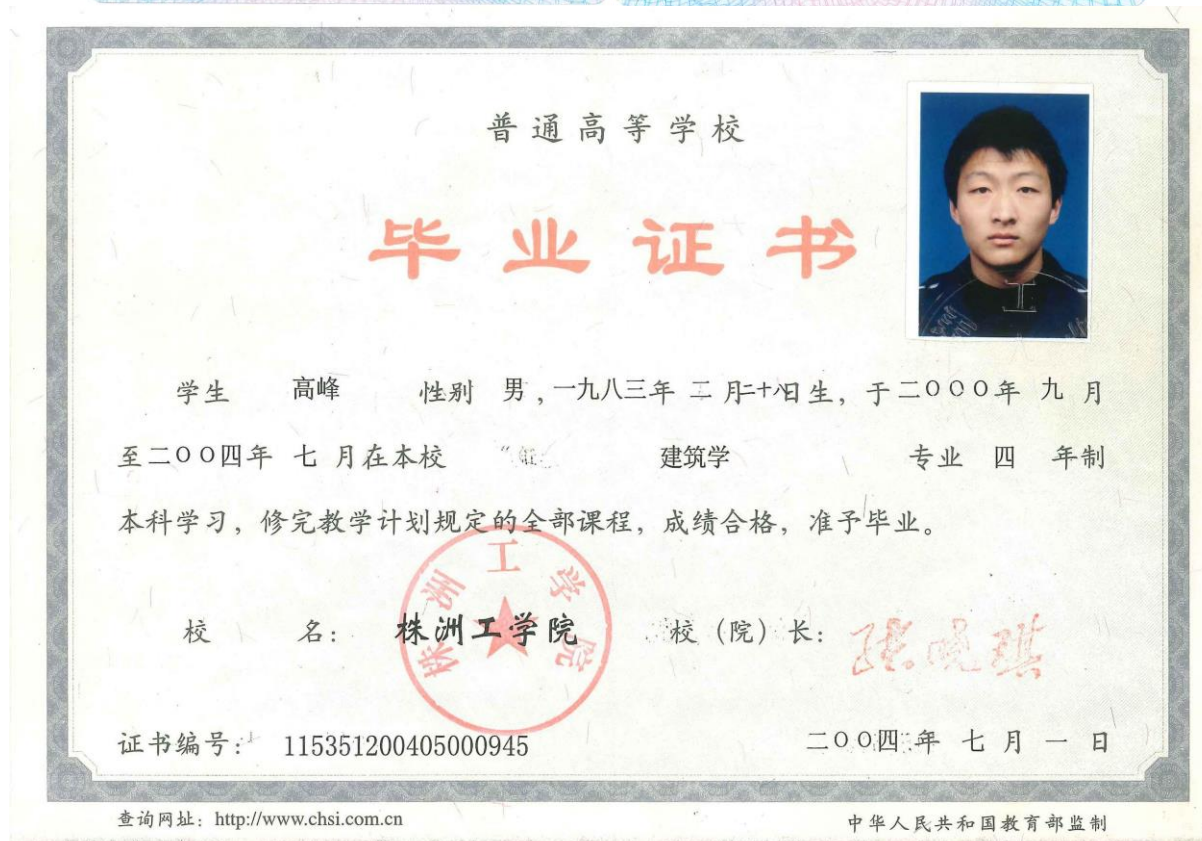 普通高等学校
毕业证书
学生 高峰 性别 男，一九八三年 二 月二十八日生，于二〇〇〇年 九 月
至二〇〇四年 七 月在本校 建筑学 专业 四 年制
本科学习，修完教学计划规定的全部课程，成绩合格，准予毕业。
株洲工学院
校 名： 株洲工学院 校（院）长： 张晓琪
证书编号： 115351200405000945 二〇〇四年 七 月 一 日
查询网址：http://www.chsi.com.cn 中华人民共和国教育部监制